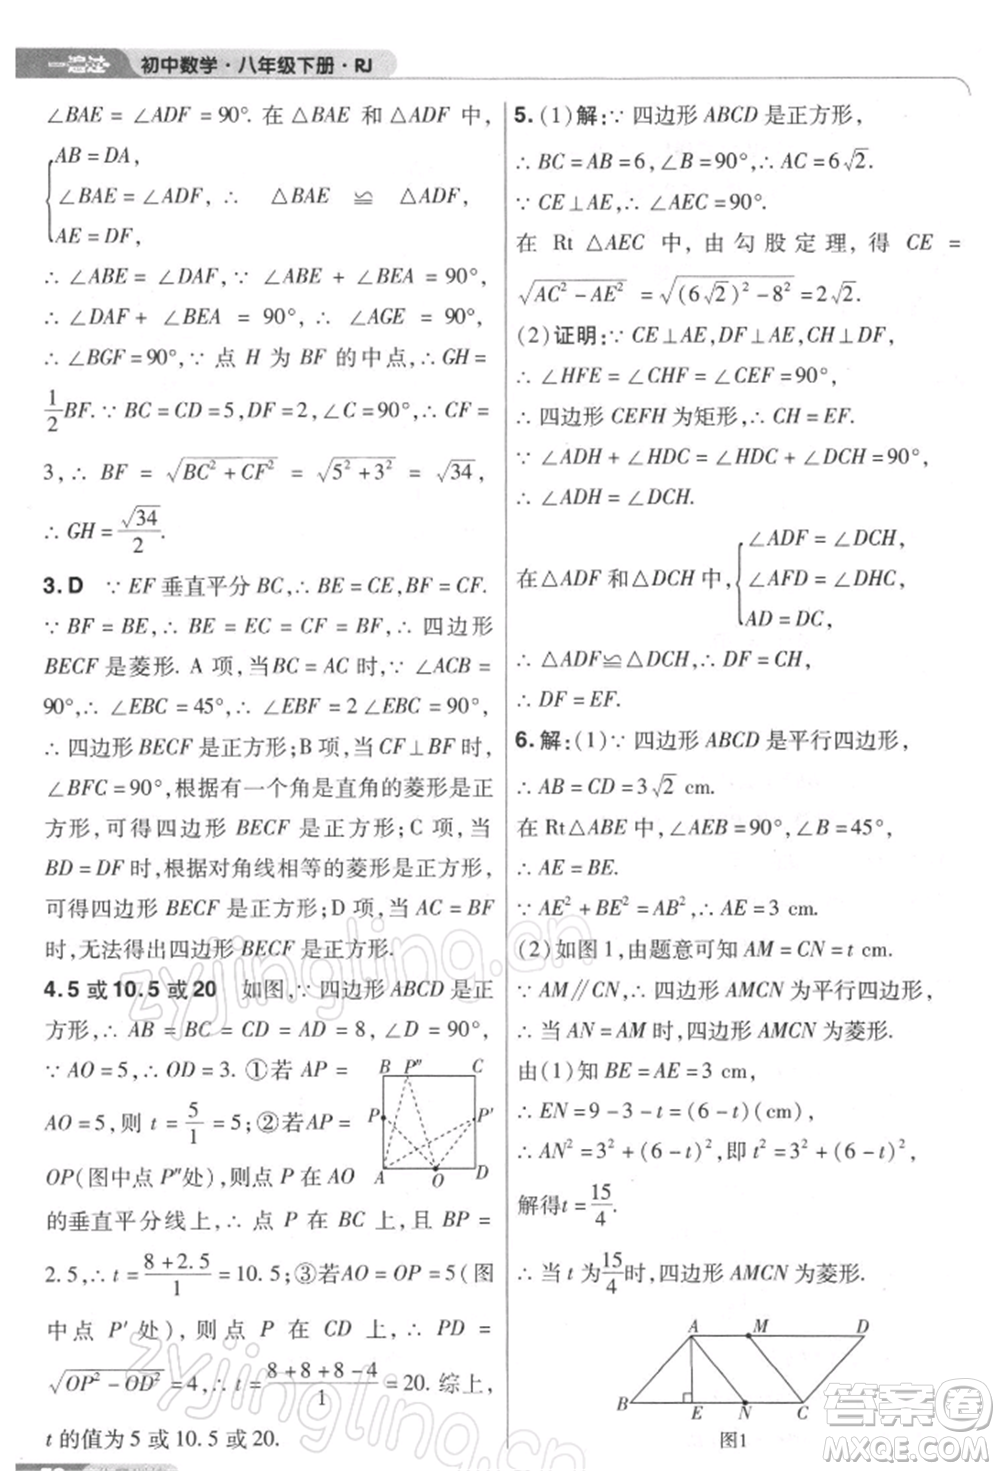 一遍过 初中数学·八年级下册·RJ
∠BAE = ∠ADF = 90°. 在 △BAE 和 △ADF 中,
AB = DA,
∠BAE = ∠ADF, ∴ △BAE ≌ △ADF,
AE = DF,
∴ ∠ABE = ∠DAF, ∵ ∠ABE + ∠BEA = 90°,
∴ ∠DAF + ∠BEA = 90°, ∴ ∠AGE = 90°,
∴ ∠BGF = 90°, ∵ 点 H 为 BF 的中点, ∴ GH =
1/2 BF. ∵ BC = CD = 5, DF = 2, ∠C = 90°, ∴ CF =
3, ∴ BF = √(BC² + CF²) = √(5² + 3²) = √34,
∴ GH = √34/2.
3. D ∵ EF 垂直平分 BC, ∴ BE = CE, BF = CF.
∵ BF = BE, ∴ BE = EC = CF = BF, ∴ 四边形
BECF 是菱形. A 项, 当 BC = AC 时, ∵ ∠ACB =
90°, ∴ ∠EBC = 45°, ∴ ∠EBF = 2∠EBC = 90°,
∴ 四边形 BECF 是正方形; B 项, 当 CF⊥BF 时,
∠BFC = 90°, 根据有一个角是直角的菱形是正
方形, 可得四边形 BECF 是正方形; C 项, 当
BD = DF 时, 根据对角线相等的菱形是正方形,
可得四边形 BECF 是正方形; D 项, 当 AC = BF
时, 无法得出四边形 BECF 是正方形.
4. 5 或 10.5 或 20 如图, ∵ 四边形 ABCD 是正
方形, ∴ AB = BC = CD = AD = 8, ∠D = 90°,
∵ AO = 5, ∴ OD = 3. ①若 AP =
AO = 5, 则 t = 5/1 = 5; ②若 AP =
OP(图中点 P″处), 则点 P 在 AO
的垂直平分线上, ∴ 点 P 在 BC 上, 且 BP =
2.5, ∴ t = (8 + 2.5)/1 = 10.5; ③若 AO = OP = 5(图
中点 P′处), 则点 P 在 CD 上, ∴ PD =
√(OP² − OD²) = 4, ∴ t = (8 + 8 + 8 − 4)/1 = 20. 综上,
t 的值为 5 或 10.5 或 20.
B P″ C
P P′
A O D
5. (1)解: ∵ 四边形 ABCD 是正方形,
∴ BC = AB = 6, ∠B = 90°, ∴ AC = 6√2.
∵ CE⊥AE, ∴ ∠AEC = 90°.
在 Rt△AEC 中, 由勾股定理, 得 CE =
√(AC² − AE²) = √((6√2)² − 8²) = 2√2.
(2)证明: ∵ CE⊥AE, DF⊥AE, CH⊥DF,
∴ ∠HFE = ∠CHF = ∠CEF = 90°,
∴ 四边形 CEFH 为矩形, ∴ CH = EF.
∵ ∠ADH + ∠HDC = ∠HDC + ∠DCH = 90°,
∴ ∠ADH = ∠DCH.
∠ADF = ∠DCH,
在△ADF 和△DCH 中, ∠AFD = ∠DHC,
AD = DC,
∴ △ADF≌△DCH, ∴ DF = CH,
∴ DF = EF.
6. 解: (1) ∵ 四边形 ABCD 是平行四边形,
∴ AB = CD = 3√2 cm.
在 Rt△ABE 中, ∠AEB = 90°, ∠B = 45°,
∴ AE = BE.
∵ AE² + BE² = AB², ∴ AE = 3 cm.
(2)如图 1, 由题意可知 AM = CN = t cm.
∵ AM∥CN, ∴ 四边形 AMCN 为平行四边形,
∴ 当 AN = AM 时, 四边形 AMCN 为菱形.
由(1)知 BE = AE = 3 cm,
∴ EN = 9 − 3 − t = (6 − t)(cm),
∴ AN² = 3² + (6 − t)², 即 t² = 3² + (6 − t)²,
解得 t = 15/4.
∴ 当 t 为 15/4 时, 四边形 AMCN 为菱形.
A M D
B E N C
图1
zyjingling.cn
zyjingling
答案圈
MXQE.COM